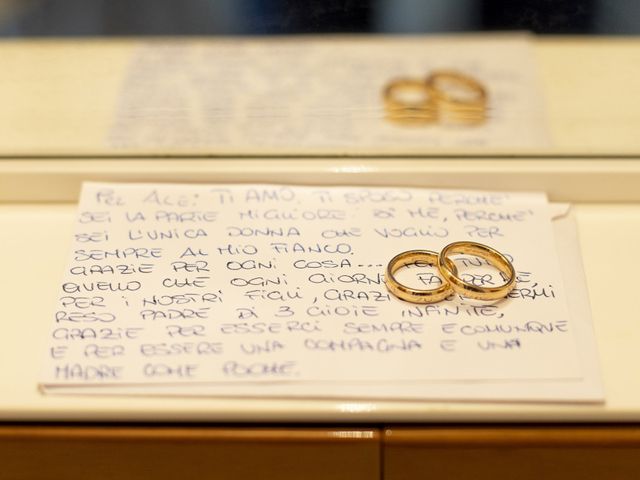 PER ALE: TI AMO. TI SPOSO PERCHE'
SEI LA PARTE MIGLIORE DI ME, PERCHE'
SEI L'UNICA DONNA CHE VOGLIO PER
SEMPRE AL MIO FIANCO.
GRAZIE PER OGNI COSA... TUTTO
QUELLO CHE OGNI GIORNO FAI PER ME,
PER I NOSTRI FIGLI, GRAZIE
RESO PADRE DI 3 GIOIE INFINITE,
GRAZIE PER ESSERCI SEMPRE E COMUNQUE
E PER ESSERE UNA COMPAGNA E UNA
MADRE COME POCHE.